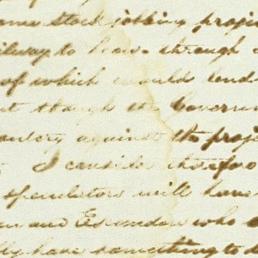 some stock jobbing projec
ilway to leave through
of which would tend
t though the Governm
antry against the proje
I consider therefore
speculators will have
and Escandon who
ly have something to d